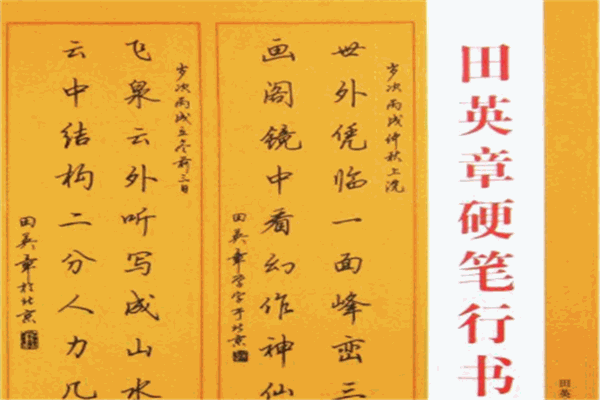 田英
田英章硬笔行书
岁次丙戌仲秋上浣
世外凭临一面峰峦三
画阁镜中看幻作神仙
田英章学字于北京
岁次丙戌立冬前三日
飞泉云外听写成山水
云中结构二分人力几
田英章於北京